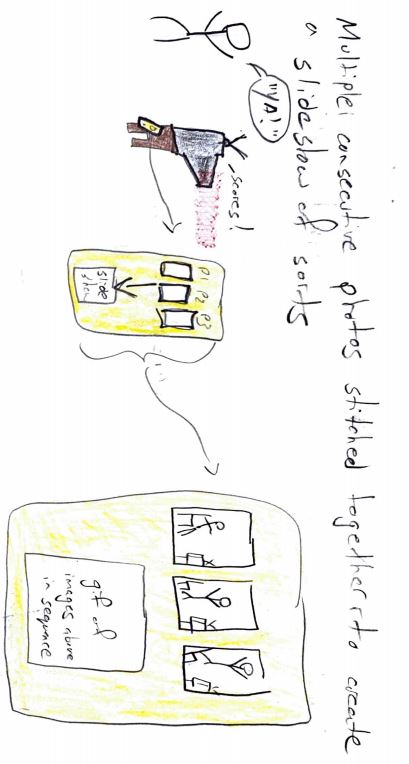 Multiple consecutive photos stitched together to create
a slideslow of sorts
"YA!"
scores!
P1 P2 P3
slide
show
gif of
images above
in sequence